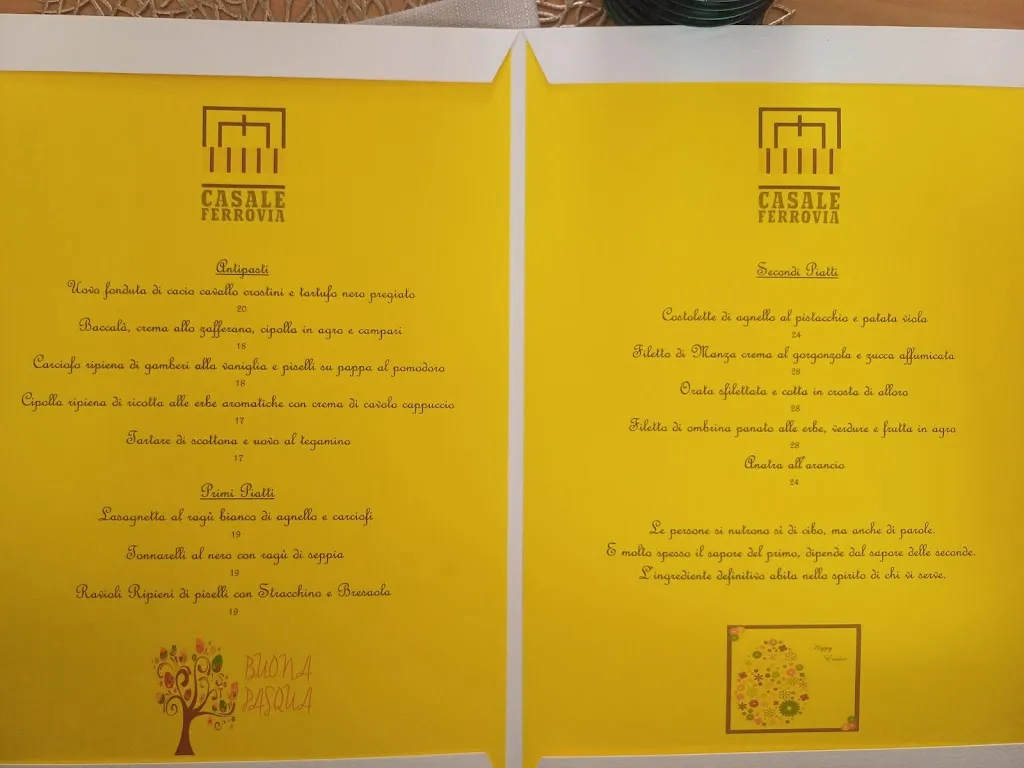 CASALE
FERROVIA
Antipasti
Uovo fonduta di cacio cavallo crostini e tartufo nero pregiato
20
Baccalà, crema allo zafferano, cipolla in agro e campari
18
Carciofo ripieno di gamberi alla vaniglia e piselli su pappa al pomodoro
18
Cipolla ripiena di ricotta alle erbe aromatiche con crema di cavolo cappuccio
17
Tartare di scottona e uovo al tegamino
17
Primi Piatti
Lasagnetta al ragù bianco di agnello e carciofi
19
Tonnarelli al nero con ragù di seppia
19
Ravioli Ripieni di piselli con Stracchino e Bresaola
19
BUONA
PASQUA
CASALE
FERROVIA
Secondi Piatti
Costolette di agnello al pistacchio e patata viola
24
Filetto di Manzo crema al gorgonzola e zucca affumicata
28
Orata sfilettata e cotta in crosta di alloro
28
Filetto di ombrina panato alle erbe, verdure e frutta in agro
28
Anatra all'arancio
24
Le persone si nutrono sì di cibo, ma anche di parole.
E molto spesso il sapore del primo, dipende dal sapore delle seconde.
L'ingrediente definitivo abita nello spirito di chi vi serve.
Happy
Easter